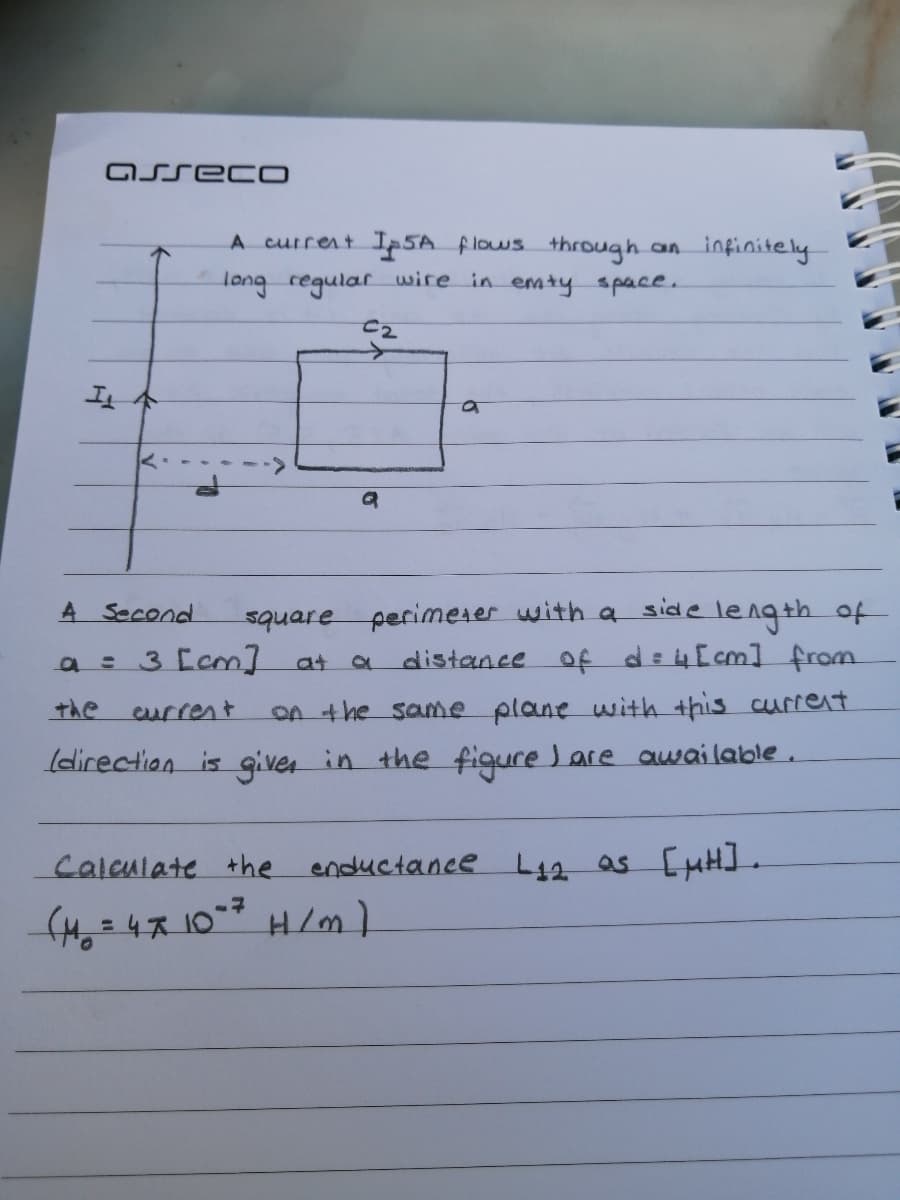 asseco
A current I₁=5A flows through an infinitely
long regular wire in emty space.
C2
I1
a
d
a
A Second square perimeter with a side length of
a = 3 [cm] at a distance of d=4[cm] from
the current on the same plane with this current
(direction is given in the figure) are awailable.
Calculate the enductance L12 as [μH].
(μ₀ = 4π 10⁻⁷ H/m)